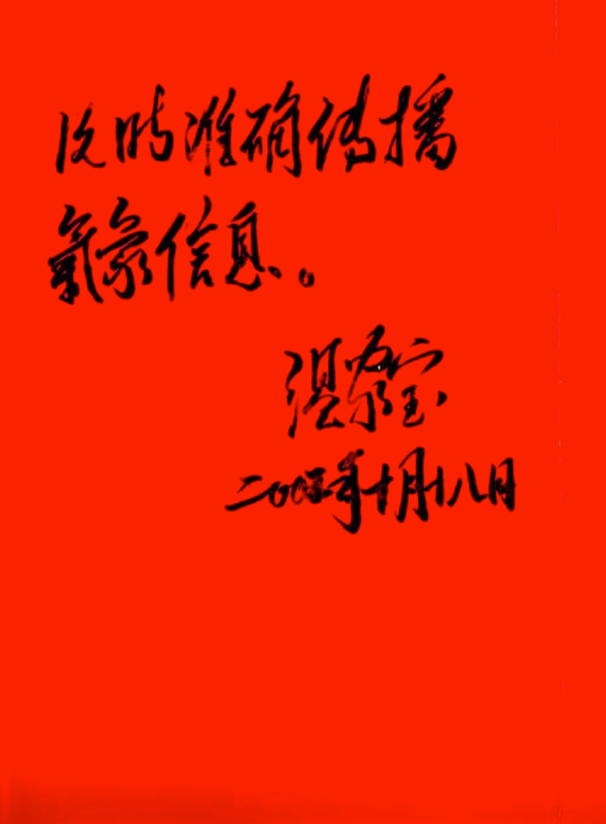 及时准确传播
氣象信息。
温家宝
二〇〇五年十月十八日